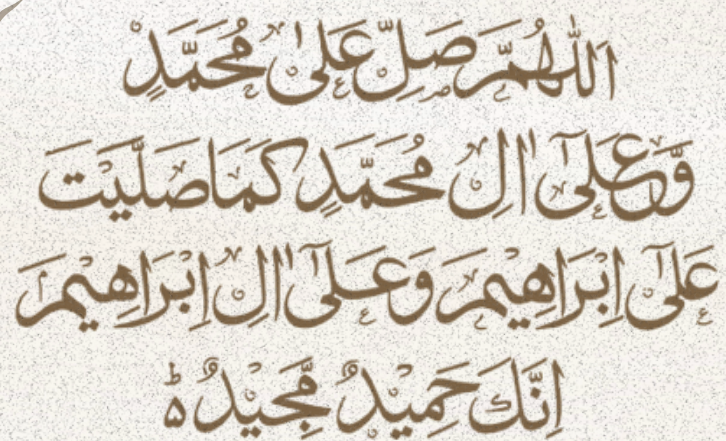 اَللّٰهُمَّ صَلِّ عَلٰى مُحَمَّدٍ
وَّعَلٰٓى اٰلِ مُحَمَّدٍ كَمَا صَلَّيْتَ
عَلٰٓى اِبْرَاهِيْمَ وَعَلٰٓى اٰلِ اِبْرَاهِيْمَ
اِنَّكَ حَمِيْدٌ مَّجِيْدٌ ؕ